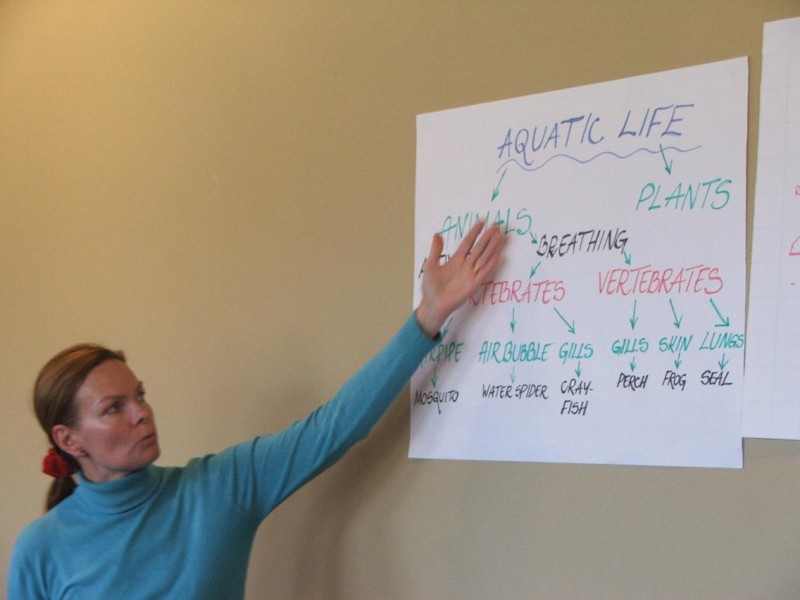 AQUATIC LIFE
ANIMALS
PLANTS
BREATHING
VERTEBRATES
AIRBUBBLE GILLS GILLS SKIN LUNGS
MOSQUITO WATER SPIDER CRAY-
FISH
PERCH FROG SEAL